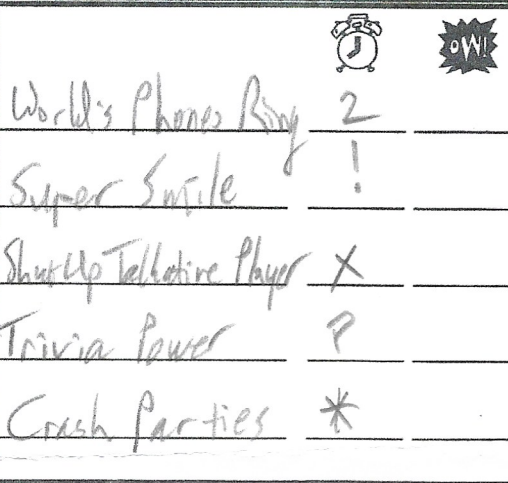 OW!
World's Phones Ring 2
Super Smile !
Shut Up Talkative Player X
Trivia Power ?
Crash Parties *